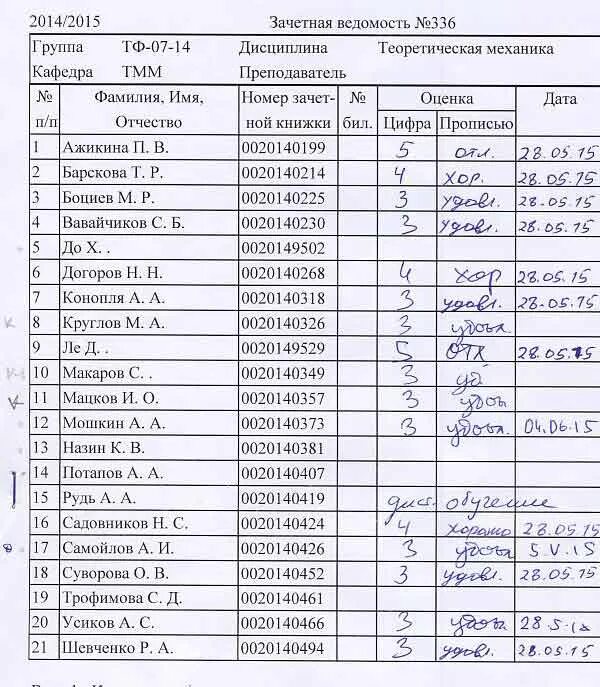 2014/2015 Зачетная ведомость №336
Группа ТФ-07-14 Дисциплина Теоретическая механика
Кафедра ТММ Преподаватель
№ п/п Фамилия, Имя, Отчество Номер зачет-ной книжки № бил. Оценка Дата
Цифра Прописью
1 Ажикина П. В. 0020140199 5 отл. 28.05.15
2 Барскова Т. Р. 0020140214 4 хор. 28.05.15
3 Боциев М. Р. 0020140225 3 удовл. 28.05.15
4 Вавайчиков С. Б. 0020140230 3 удовл. 28.05.15
5 До Х. . 0020149502
6 Догоров Н. Н. 0020140268 4 хор 28.05.15
7 Конопля А. А. 0020140318 3 удовл. 28.05.15
8 Круглов М. А. 0020140326 3
9 Ле Д. . 0020149529 5 ОТЛ 28.05.15
10 Макаров С. . 0020140349 3 уд
11 Мацков И. О. 0020140357 3
12 Мошкин А. А. 0020140373 3 04.06.15
13 Назин К. В. 0020140381
14 Потапов А. А. 0020140407
15 Рудь А. А. 0020140419 дист. обучение
16 Садовников Н. С. 0020140424 4 хорошо 28.05.15
17 Самойлов А. И. 0020140426 3 5.V.15
18 Суворова О. В. 0020140452 3 удовл. 28.05.15
19 Трофимова С. Д. 0020140461
20 Усиков А. С. 0020140466 3
21 Шевченко Р. А. 0020140494 3 удовл. 28.05.15